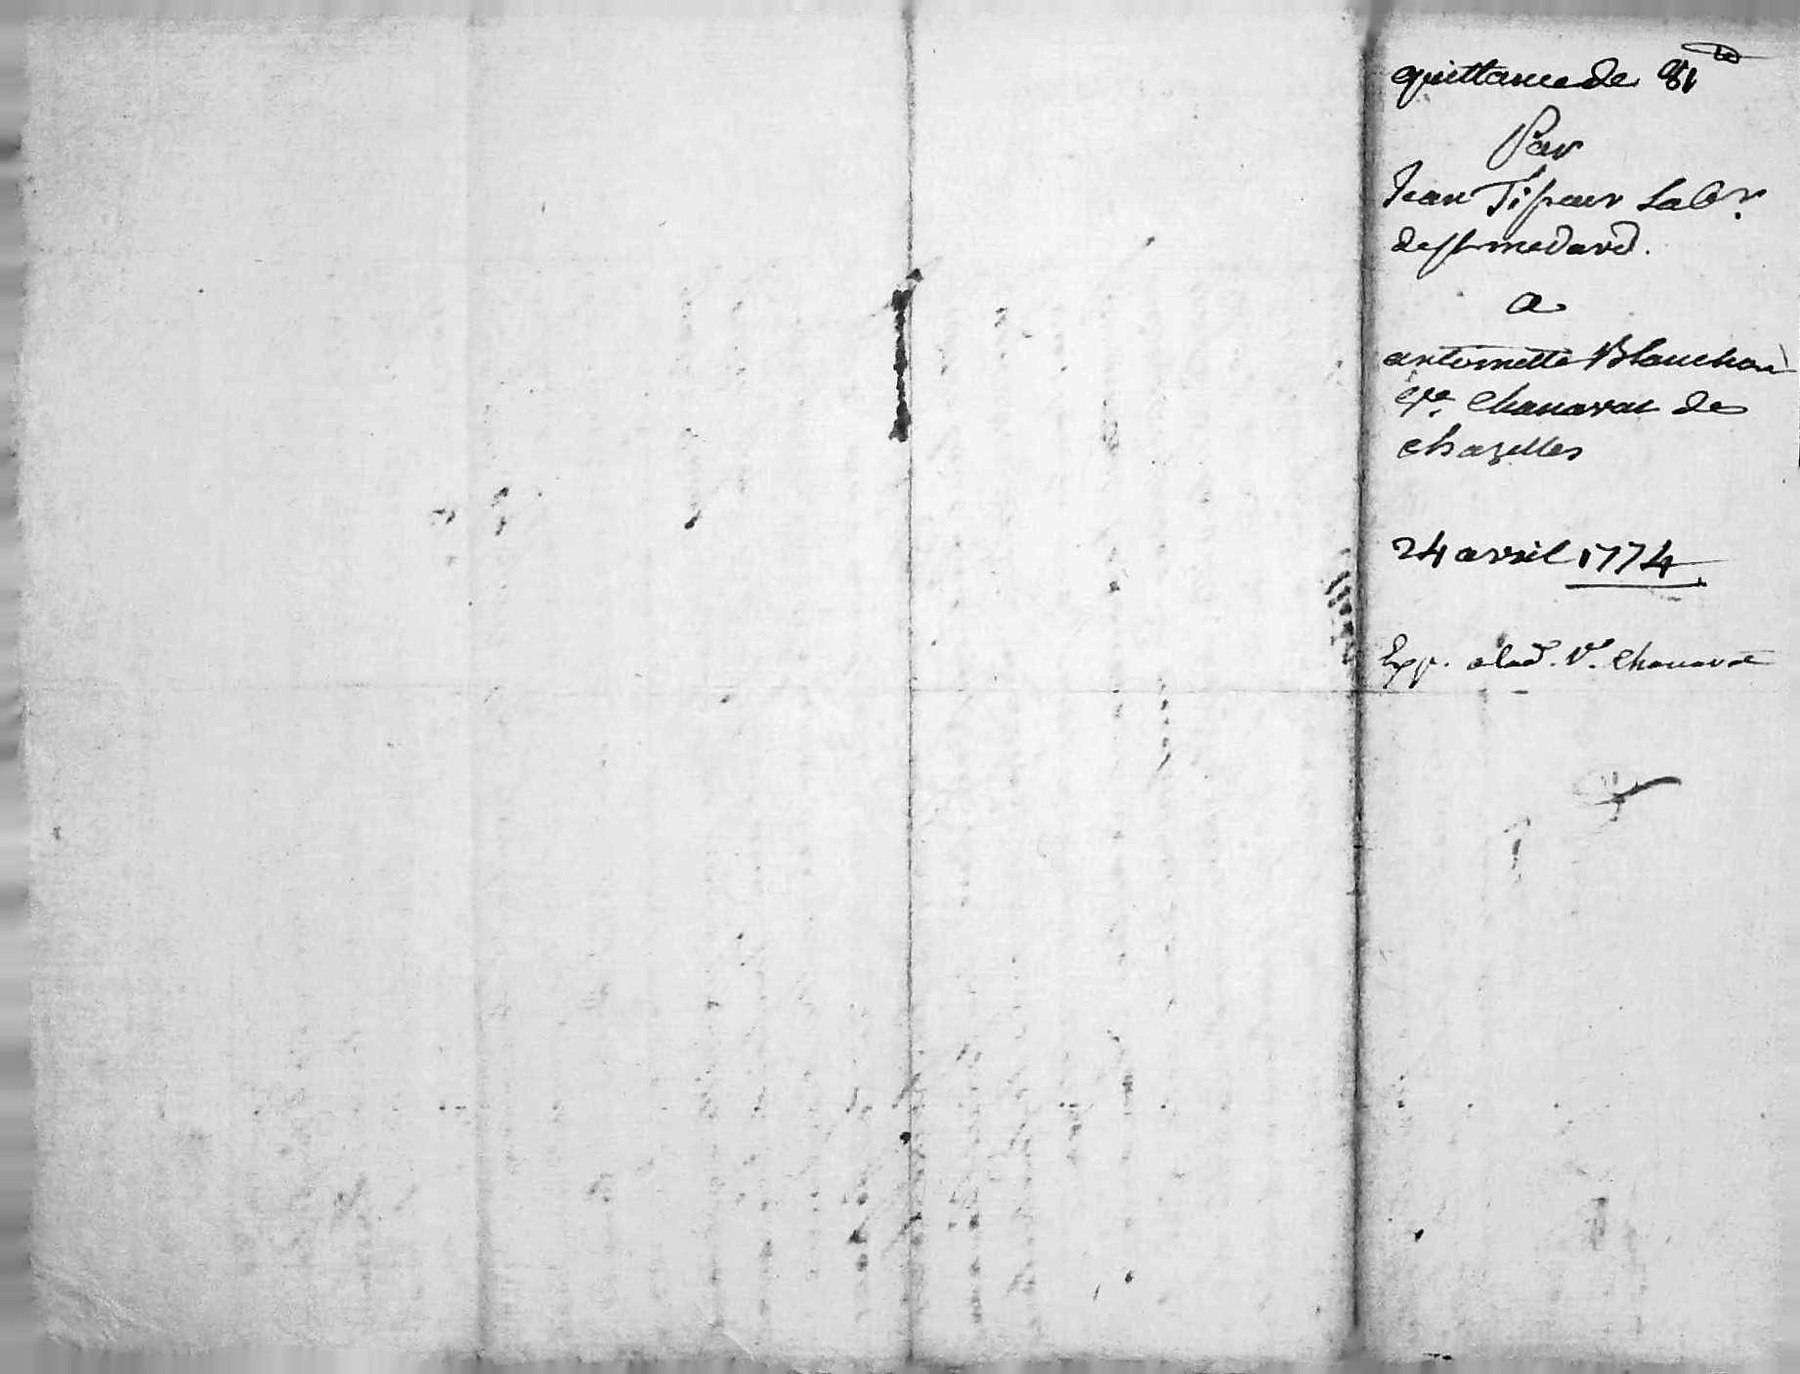 quittance de 81 lt
Par
Jean Tisseur Labr.
de st medard.
a
antoinette Blanchon
Ve. Chanavat de
chazelles
24 avril 1774
Exp. a lad. Ve. Chanavat